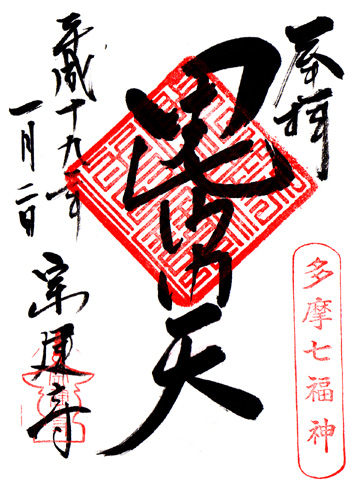 奉拝
多摩七福神
毘沙門天
平成十九年
一月二日
宗建寺